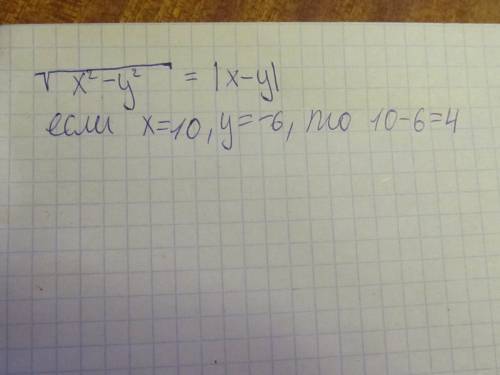 √x²-y² = |x-y|
если x=10, y=-6, то 10-6=4